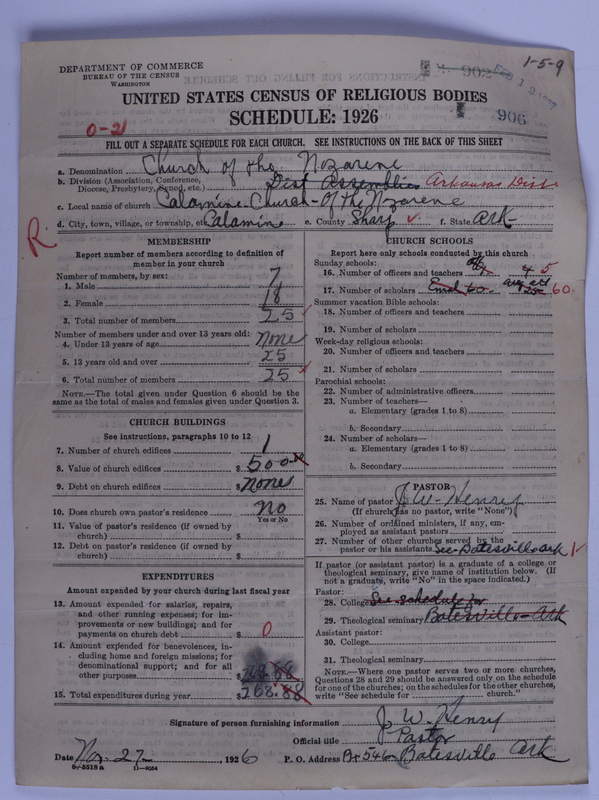 DEPARTMENT OF COMMERCE
BUREAU OF THE CENSUS
WASHINGTON
1-5-9
906
UNITED STATES CENSUS OF RELIGIOUS BODIES
SCHEDULE: 1926
0-21
FILL OUT A SEPARATE SCHEDULE FOR EACH CHURCH. SEE INSTRUCTIONS ON THE BACK OF THIS SHEET
a. Denomination Church of the Nozarene
b. Division (Association, Conference, Diocese, Presbytery, Synod, etc.) Dist Assemblies Arkansas Dist
c. Local name of church Calamine-Church-Of the Nzarene
d. City, town, village, or township, etc. Calamin e. County Sharp ✓ f. State Ark-
R.
MEMBERSHIP
Report number of members according to definition of
member in your church
Number of members, by sex:
1. Male 7
2. Female 18
3. Total number of members 25
Number of members under and over 13 years old:
4. Under 13 years of age None
5. 13 years old and over 25
6. Total number of members 25
NOTE.—The total given under Question 6 should be the
same as the total of males and females given under Question 3.
CHURCH BUILDINGS
See instructions, paragraphs 10 to 12
7. Number of church edifices 1
8. Value of church edifices $500.00
9. Debt on church edifices $None
10. Does church own pastor's residence? No
Yes or No
11. Value of pastor's residence (if owned by
church) $
12. Debt on pastor's residence (if owned by
church) $
EXPENDITURES
Amount expended by your church during last fiscal year
13. Amount expended for salaries, repairs,
and other running expenses; for im-
provements or new buildings; and for
payments on church debt $ 0
14. Amount expended for benevolences, in-
cluding home and foreign missions; for
denominational support; and for all
other purposes $268.88
15. Total expenditures during year $268.88
CHURCH SCHOOLS
Report here only schools conducted by this church
Sunday schools:
16. Number of officers and teachers 4 5
17. Number of scholars Enrol 60 60
Summer vacation Bible schools:
18. Number of officers and teachers
19. Number of scholars
Week-day religious schools:
20. Number of officers and teachers
21. Number of scholars
Parochial schools:
22. Number of administrative officers
23. Number of teachers—
a. Elementary (grades 1 to 8)
b. Secondary
24. Number of scholars—
a. Elementary (grades 1 to 8)
b. Secondary
PASTOR
25. Name of pastor J. W. Henry
(If church has no pastor, write "None")
26. Number of ordained ministers, if any, em-
ployed as assistant pastors
27. Number of other churches served by the
pastor or his assistants See-Batesville ark 1
If pastor (or assistant pastor) is a graduate of a college or
theological seminary, give name of institution below. (If
not a graduate, write "No" in the space indicated.)
Pastor:
28. College See schedule for
29. Theological seminary Batesville-Ark
Assistant pastor:
30. College
31. Theological seminary
NOTE.—Where one pastor serves two or more churches,
Questions 28 and 29 should be answered only on the schedule
for one of the churches; on the schedules for the other churches,
write "See schedule for church."
Signature of person furnishing information J. W. Henry
Official title Pastor
Date Nov. 27, 1926 P. O. Address Bx 546 Batesville Ark
8-5518 a 11-9054